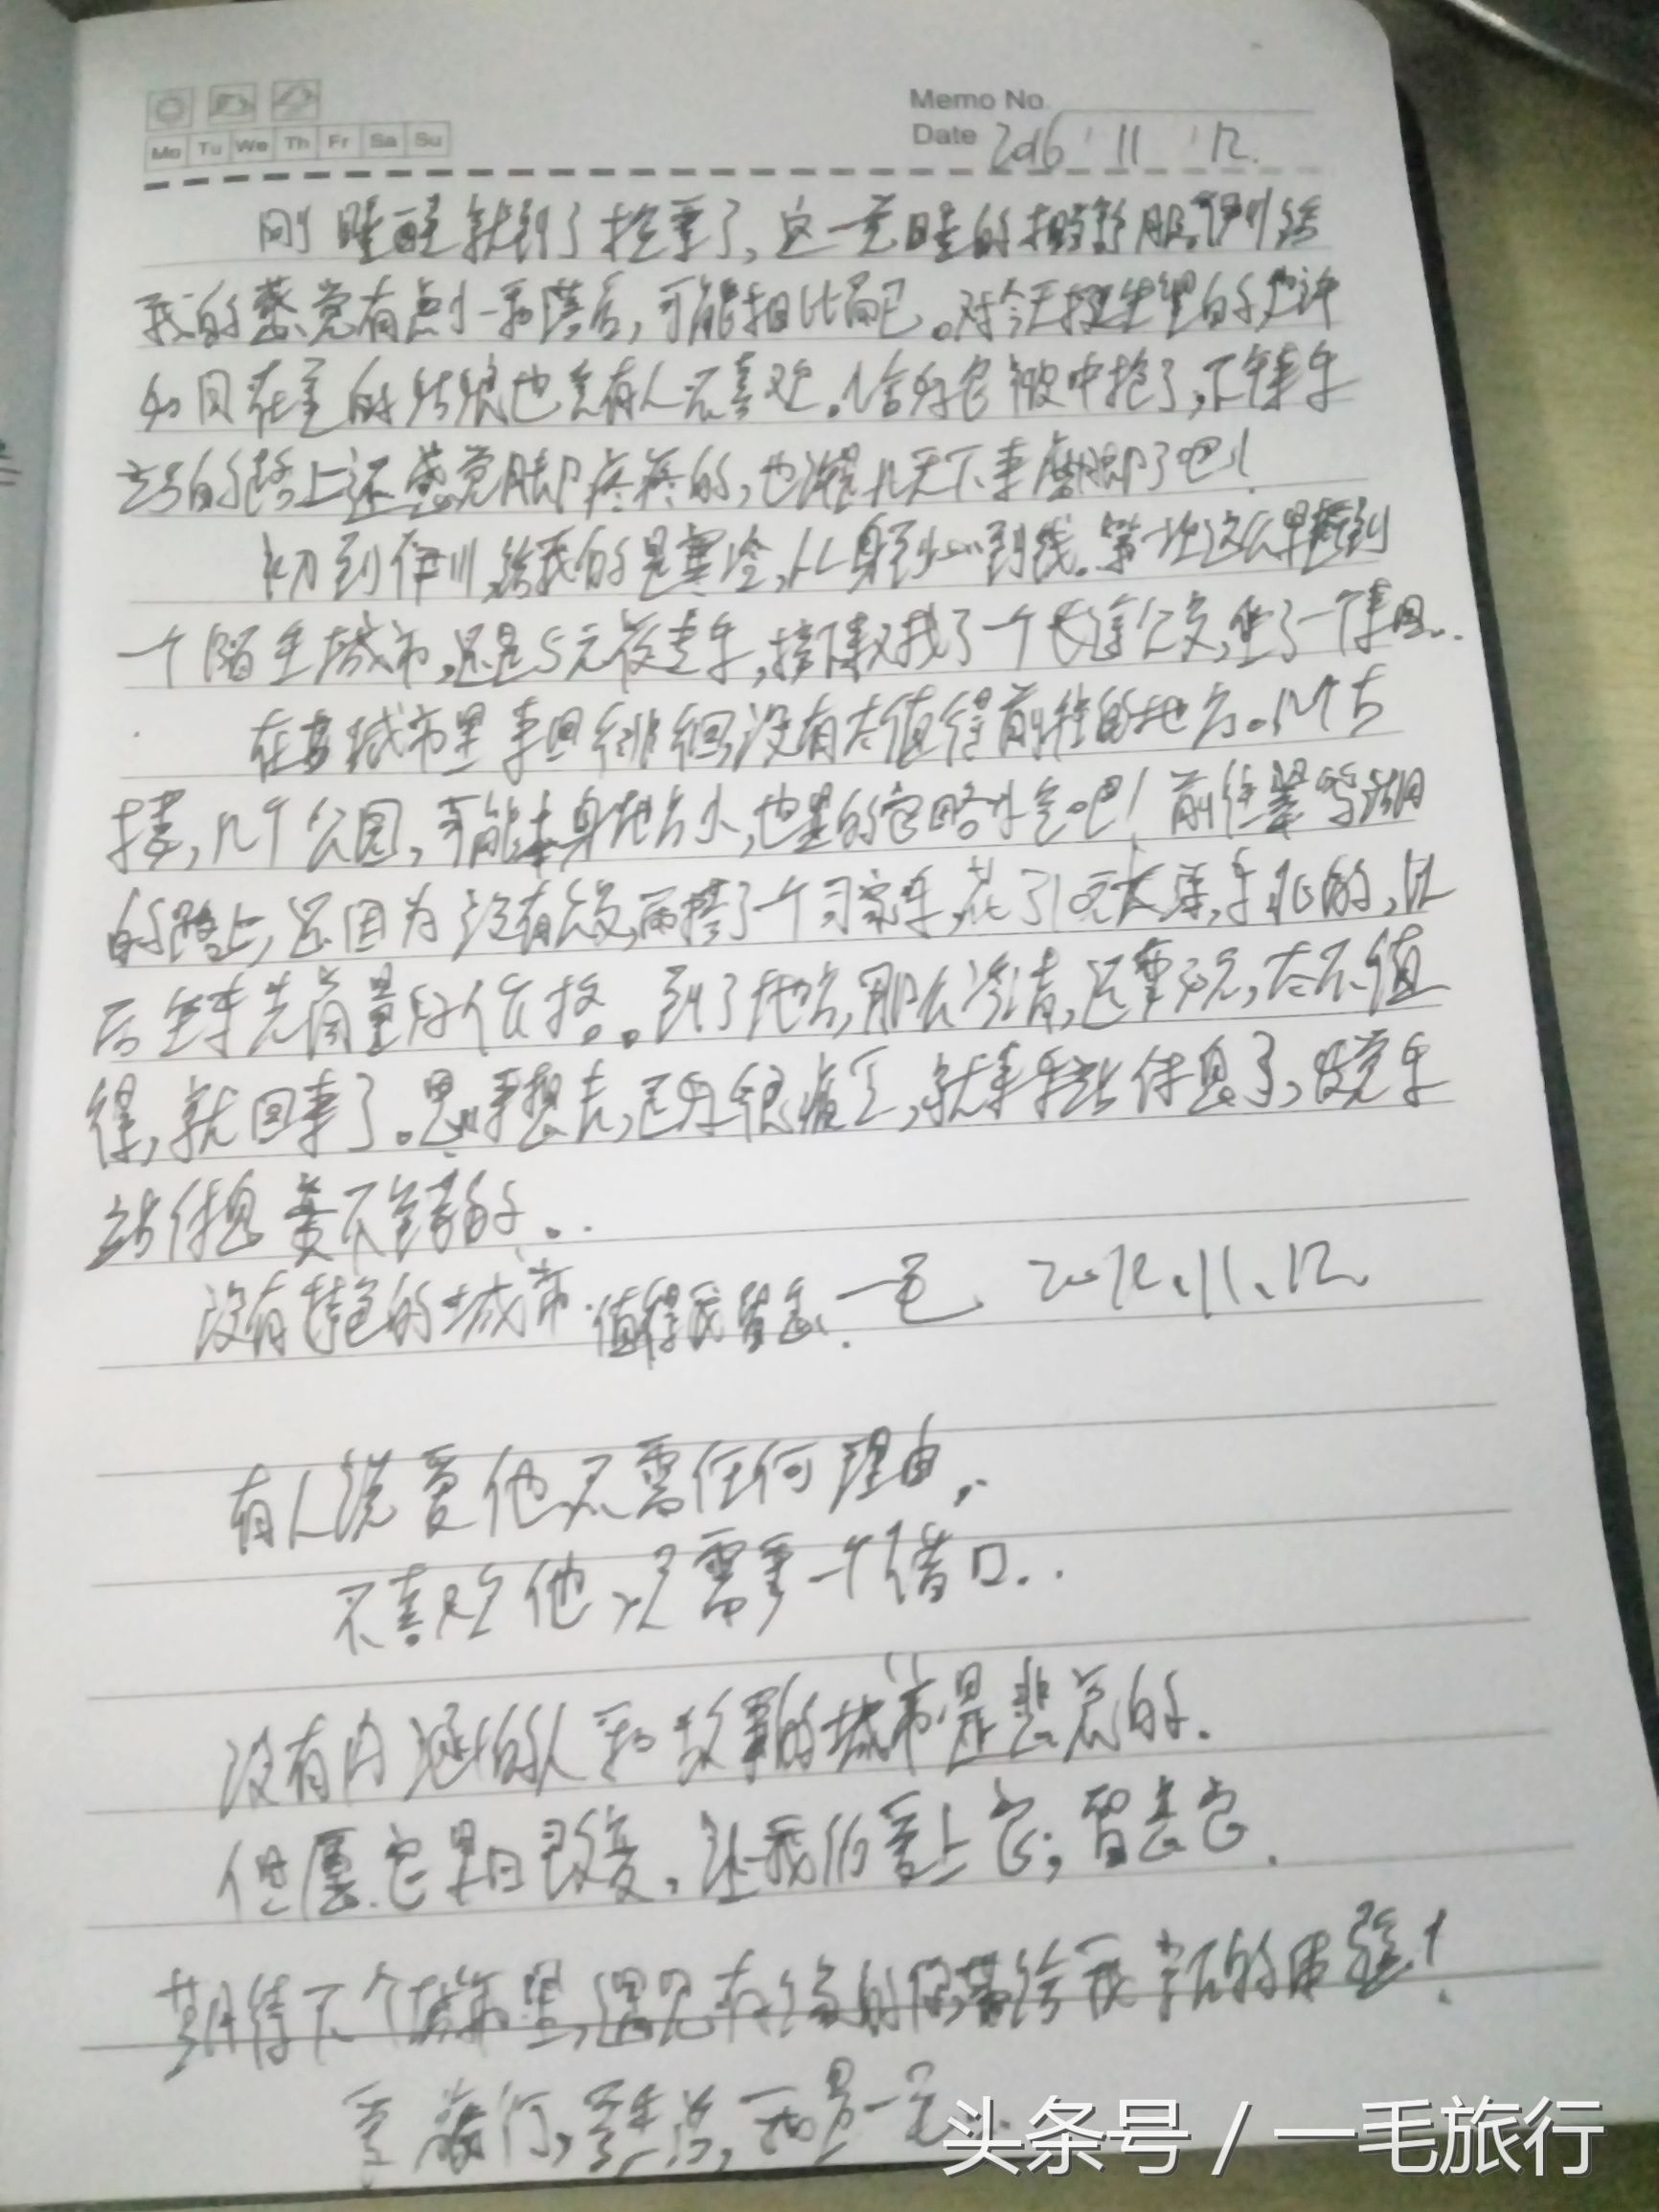 Memo No.
Mo Tu We Th Fr Sa Su
Date 2016 / 11 / 12.
刚睡醒就到了,这一觉睡的挺舒服。伊川给
我的感觉有点小和落后,可能相比而已。对
如同在的姑娘也会有人不喜欢。恰好它被中枪了,下
的路上还感觉脚疼疼的,也许是几天下来磨脚了吧!
初到伊川,给我的是寒冷,从身到心到钱。第一次这么早到
一个陌生城市,还是5元夜走车,接着又找了一个长途公交,坐了一个来回..
在城市里来回徘徊,没有太值得前往的地方。几个古
几个公园,可能本身地方小,也显的它略小气吧!前往
的路上,还因为没有公交,而搭了一个司家车,花了10元
后坐车先商量好价在搭。。到了地方,那么冷清,还要元,太不值
得,就回来了。思来想去,已经很疲乏,就来车站休息了,发觉车
站休息蛮不错的...
没有特色的城市.值得我留念.一毛. 2012.11.12.
有人说爱他不需任何理由,.
不喜欢他只需要一个借口..
没有内涵的人和故事的城市是悲哀的.
但愿它早日改变,让我们爱上它;留恋它.
期待下个城市里,遇见有缘的你,带给我的
旅行,,我是一毛...
头条号 / 一毛旅行